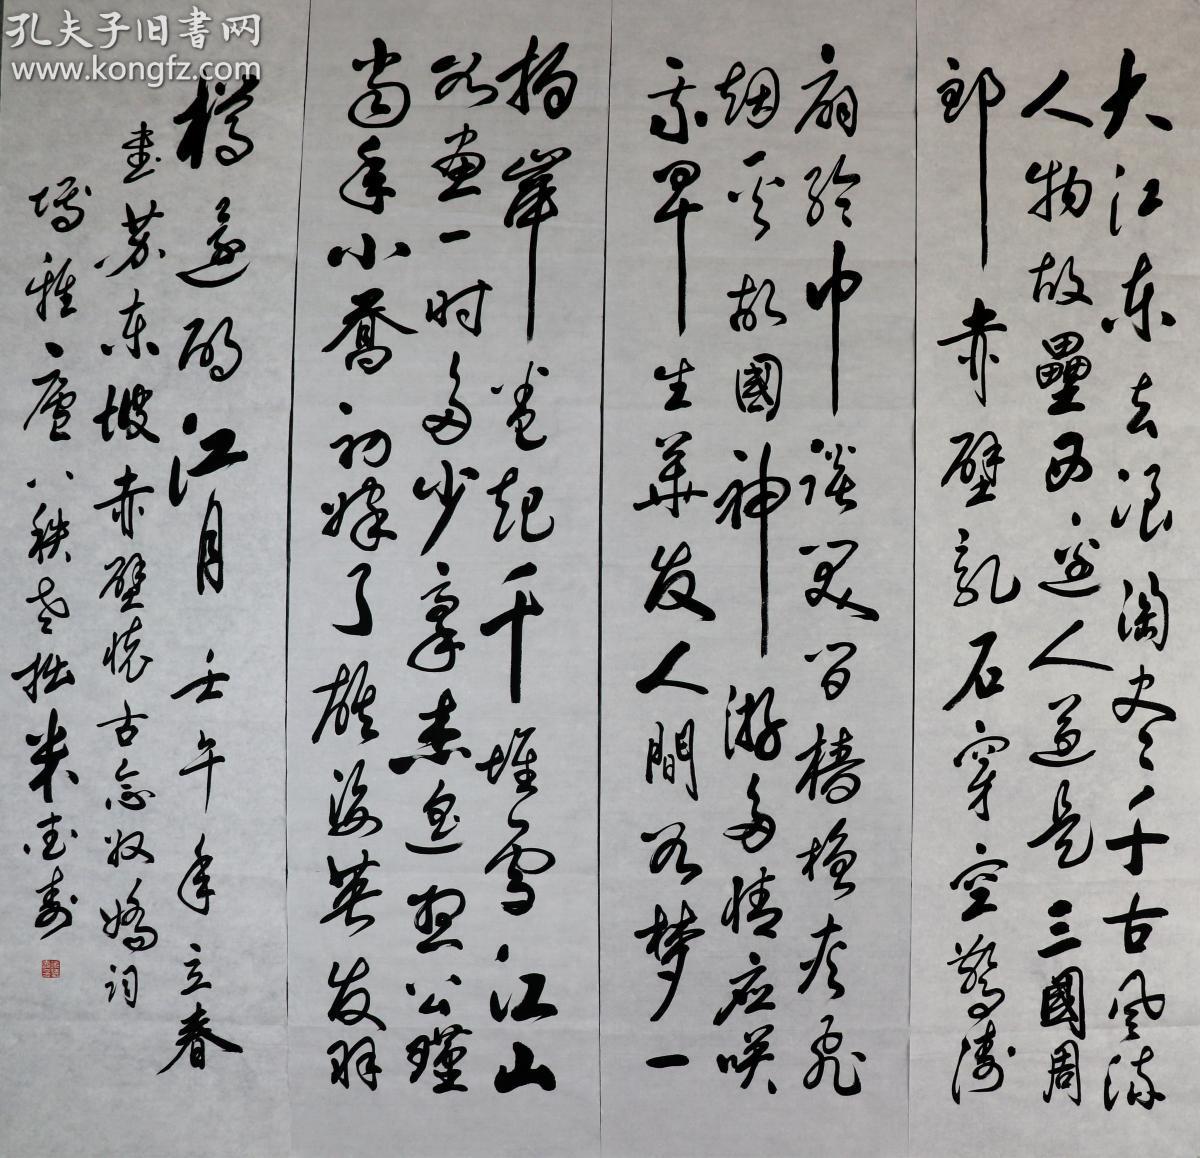 孔夫子旧書网
www.kongfz.com
大江东去浪淘尽千古风流
人物故壘西边人道是三國周
郎赤壁乱石穿空惊涛
扇纶巾谈笑间樯橹灰飞
烟灭故國神游多情应笑
我早生华发人間如梦一
拍岸卷起千堆雪江山
如画一时多少豪杰遥想公瑾
当年小乔初嫁了雄姿英发羽
樽还酹江月 壬午年立春
书苏东坡赤壁怀古念奴娇词
雅庐八秩老拙